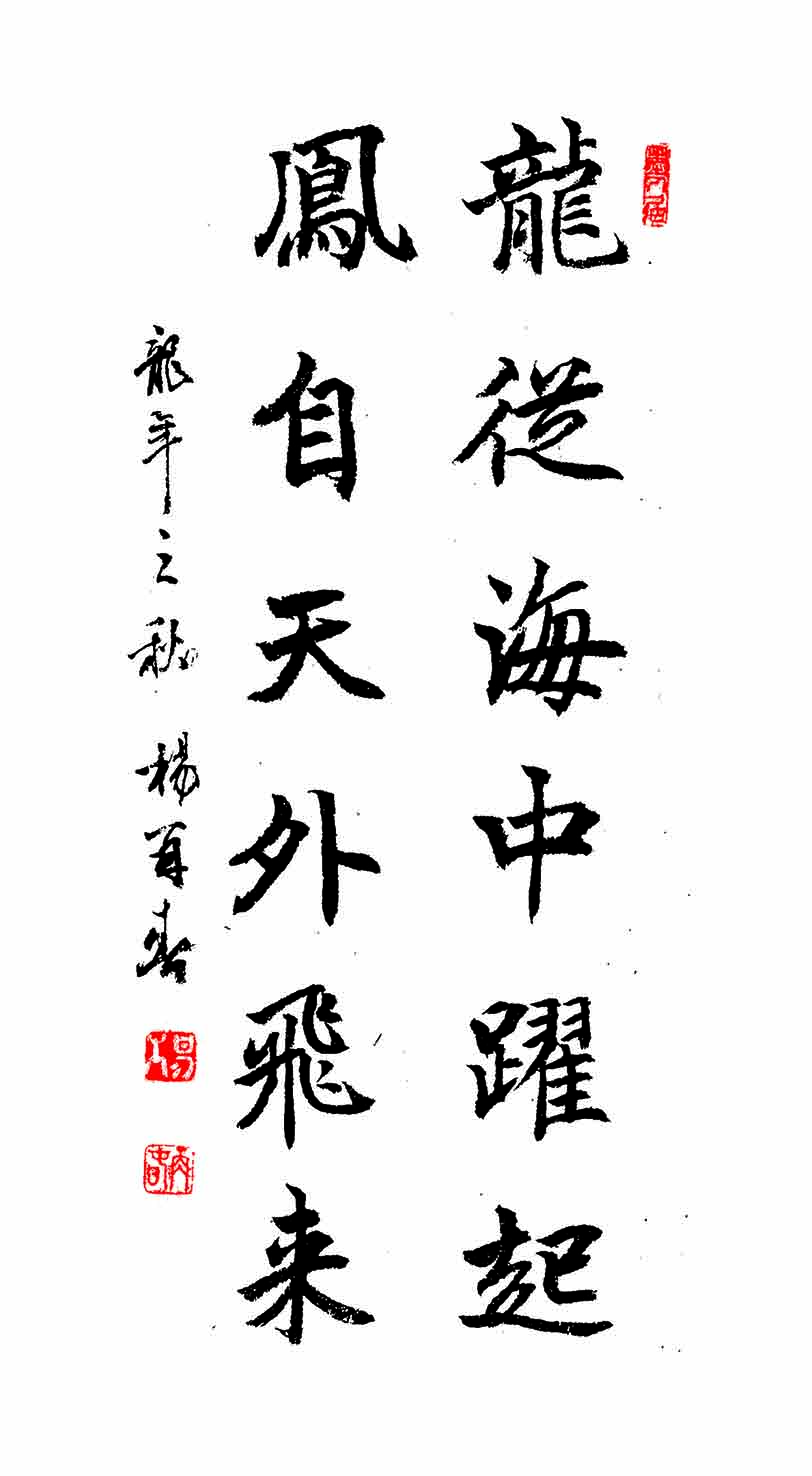 龍從海中躍起
鳳自天外飛来
龍年之秋 楊再春